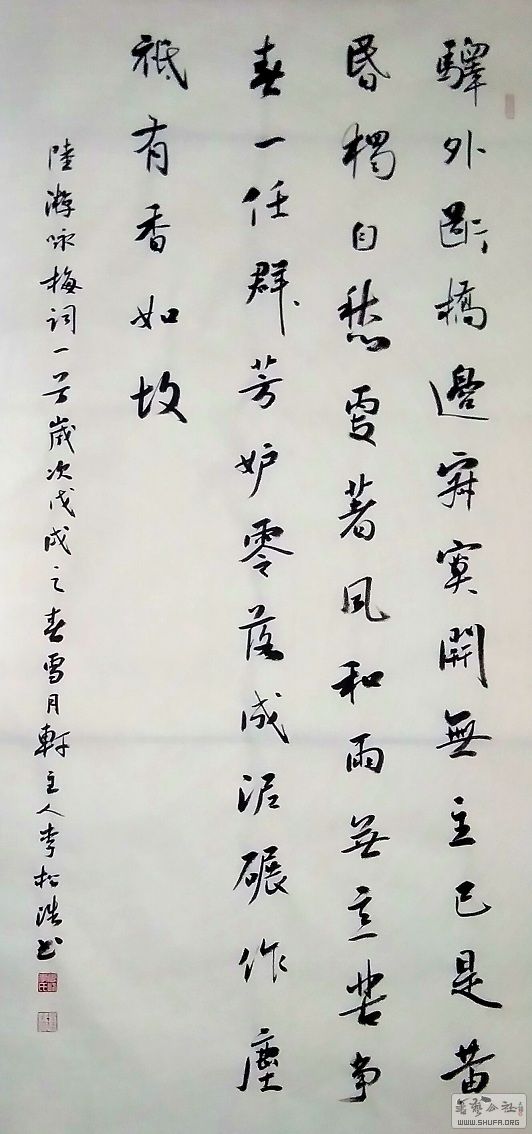 驛外斷橋邊寂寞開無主已是黃
昏獨自愁更著風和雨無意苦爭
春一任群芳妒零落成泥碾作塵
祇有香如故
陸游咏梅詞一首歲次戊戌之春雪月軒主人李松浩书
書艺公社
WWW.SHUFA.ORG